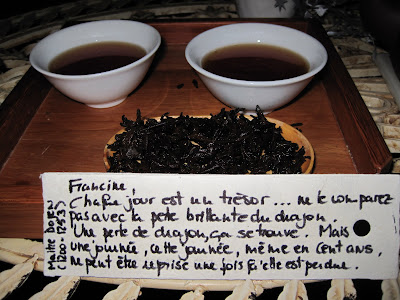 Francine,
Chaque jour est un trésor... ne le comparez
pas avec la perle brillante du dragon.
Une perte de dragon, ça se trouve. Mais
une journée, cette journée, même en cent ans,
ne peut être reprise une fois qu'elle est perdue.
Maître DOGEN
(1200-1253)